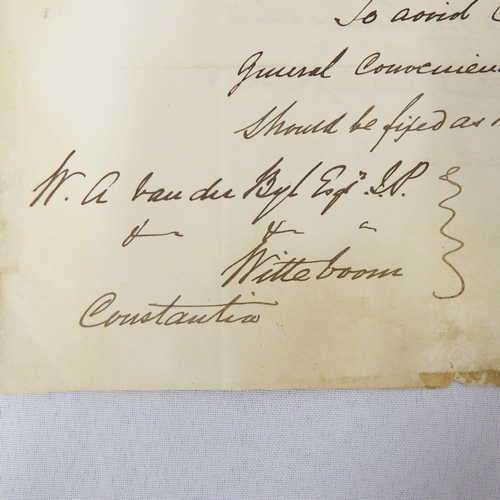 To avoid
General Convenien
Should be fixed as
W. A van der Byl Esqr. J.P.
&- &- "
Witteboom
Constantia